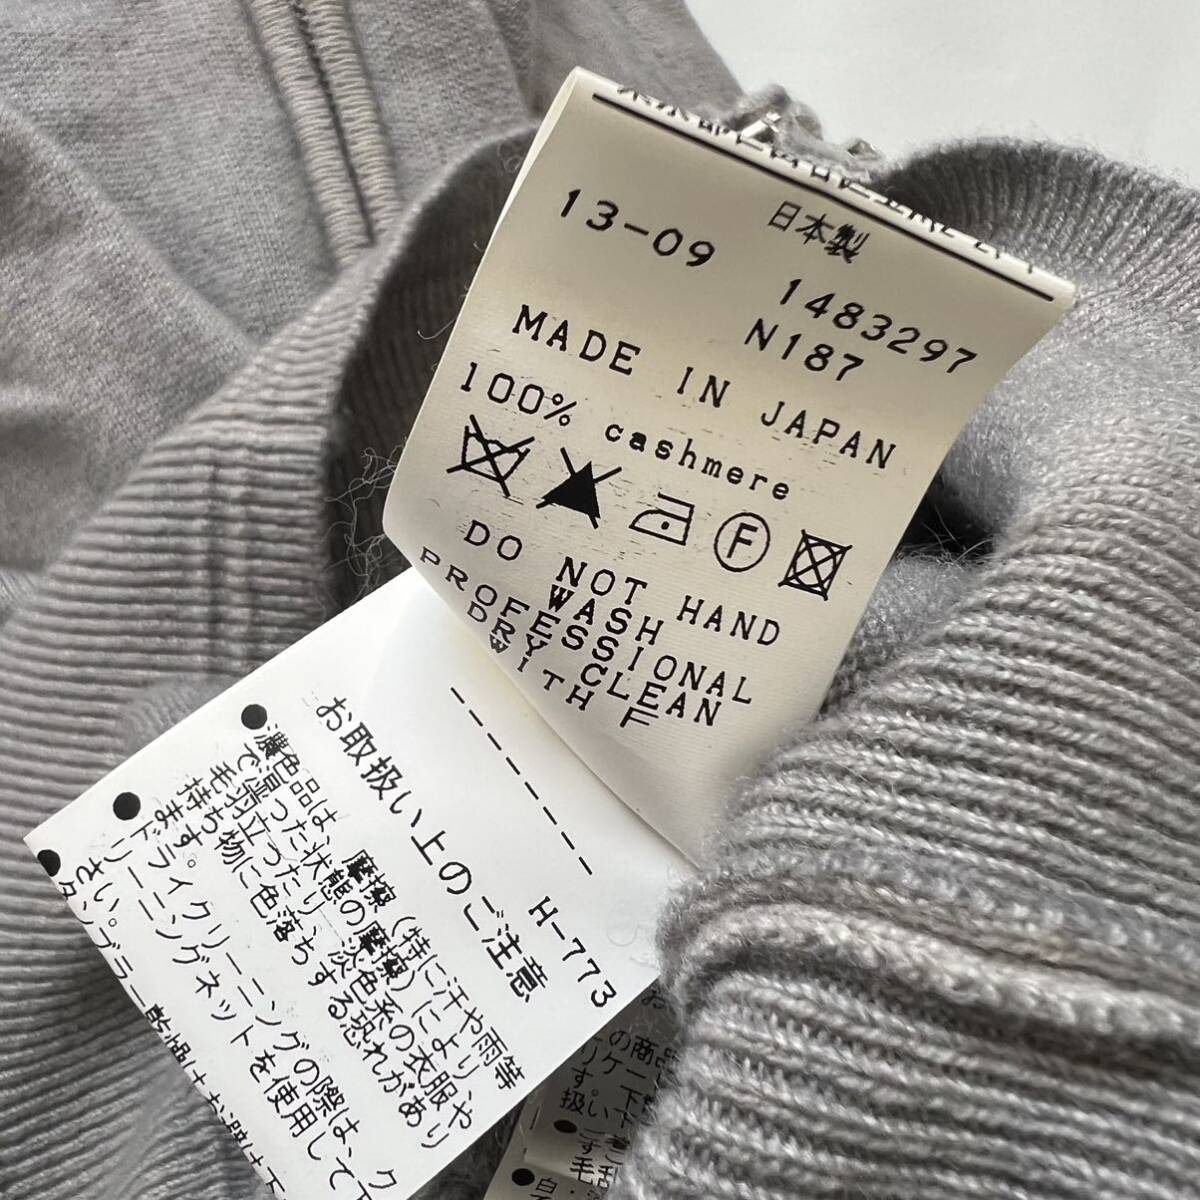 日本製
13-09
1483297
N187
MADE IN JAPAN
100% cashmere
F
DO NOT HAND
WASH
PROFESSIONAL
DRY CLEAN
WITH F
H-773
お取扱い上のご注意
●濃色品は、摩擦(特に汗や雨等
で濡った状態の摩擦)により、
毛羽立ったり、淡色系の衣服や
持ち物に色落ちする恐れがあり
ます。
●ドライクリーニングの際は、ク
リーニングネットを使用して下
さい。
●タンブラー乾燥はお避け下
の商品